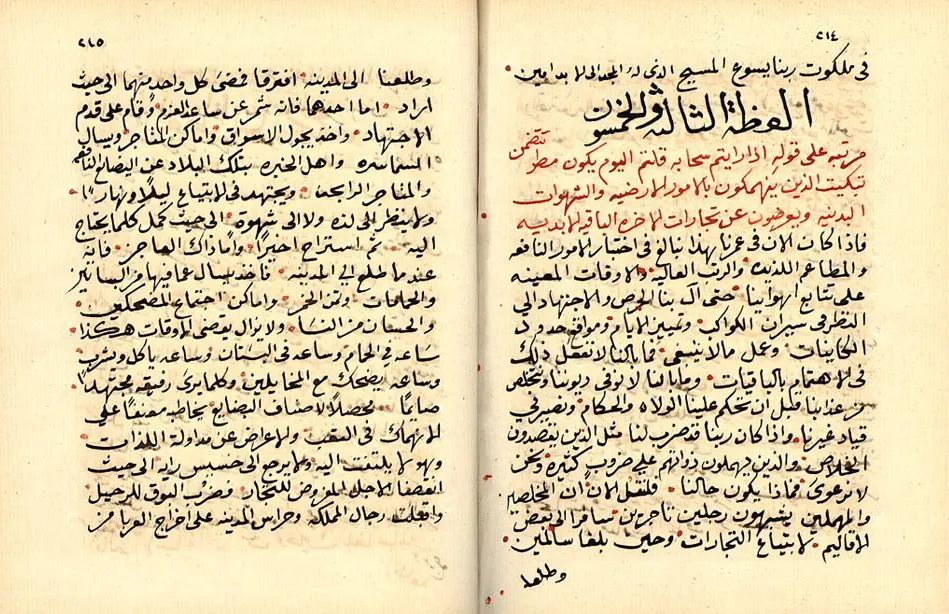 ٢١٤
في ملكوت ربنا يسوع المسيح الذي له المجد الى الابد امين
العظة الثالثه والخمسون
مرتبه على قوله اذا رايتم سحابه قلتم اليوم يكون مطر تتضمن
تبكيت الذين ينهمكون بالامور الارضيه والشهوات
البدنيه ويعرضون عن تجارات الاخره الباقيه الابديه
فاذا كان الان في عزنا بهذا نبالغ في اختبار الامور النافعه
والمطاعم اللذيذه والرتب العاليه والاوقات المعينه
على نتايع اهواينا حتى آل بنا الحرص والاجتهاد الى
النظر في سيران الكواكب وتميين الايام ومواقع حدود
الكاينات وعمل مالا ينبغي فما بالنا لا نفعل ذلك
في الاهتمام بالباقيات وما بالنا لا نوفي ديوننا ونتخلص
من عذابنا قبل ان تحكم علينا الولاه والحكام ونصير في
قياد غيرنا واذا كان ربنا قد ضرب لنا مثل الذين يقصدون
الخلاص والذين يهملون ذواتهم على ضروب كثيره ونحن
لا نرعوى فماذا يكون حالنا فلنقل الان ان المخلصين
والمهملين يشبهون رجلين تاجرين سافرا الى بعض
الاقاليم لابتياع التجارات وحين بلغا سالمين
وطلعا
٢١٥
وطلعنا الى المدينه افترقا فمضى كل واحد منهما الى حيث
اراد اما احدهما فانه شمر عن ساعد العزم وقام على قدم
الاجتهاد واخذ يجول الاسواق واماكن المتاجر ويسال
السماسره واهل الخبره بتلك البلاد عن البضايع النافعه
والمتاجر الرابحه ويجتهد في الابتياع ليلا ونهارا
ولا ينظر الى لذه ولا الى شهوة الى حيث كمل كلما يحتاج
اليه ثم استراح اخيرا واما ذاك العاجز فانه
عند ما طلع الى المدينه فاخذ يسال عما فيها من البساتين
والحمامات وثمن الخمر واماكن اجتماع المضحكين
والحسان من النسا ولا يزال يقضي الاوقات هكذا
ساعه في الحمام وساعه في البستان وساعه ياكل ويشرب
وساعه يضحك مع المخايلين وكلما يرى رفيقه مجتهدا
صايما محصلا لاصناف البضايع يخاطبه معنفا على
الانهماك في التعب والاعراض عن مداولة اللذات
وهو لا يلتفت اليه ولا يرجع الى خسيس رايه الى حيث
انقضا الاجل المفروض للتجار فضرب البوق للرحيل
واقبلت رجال المملكه وحراس المدينه على اخراج الغربا من